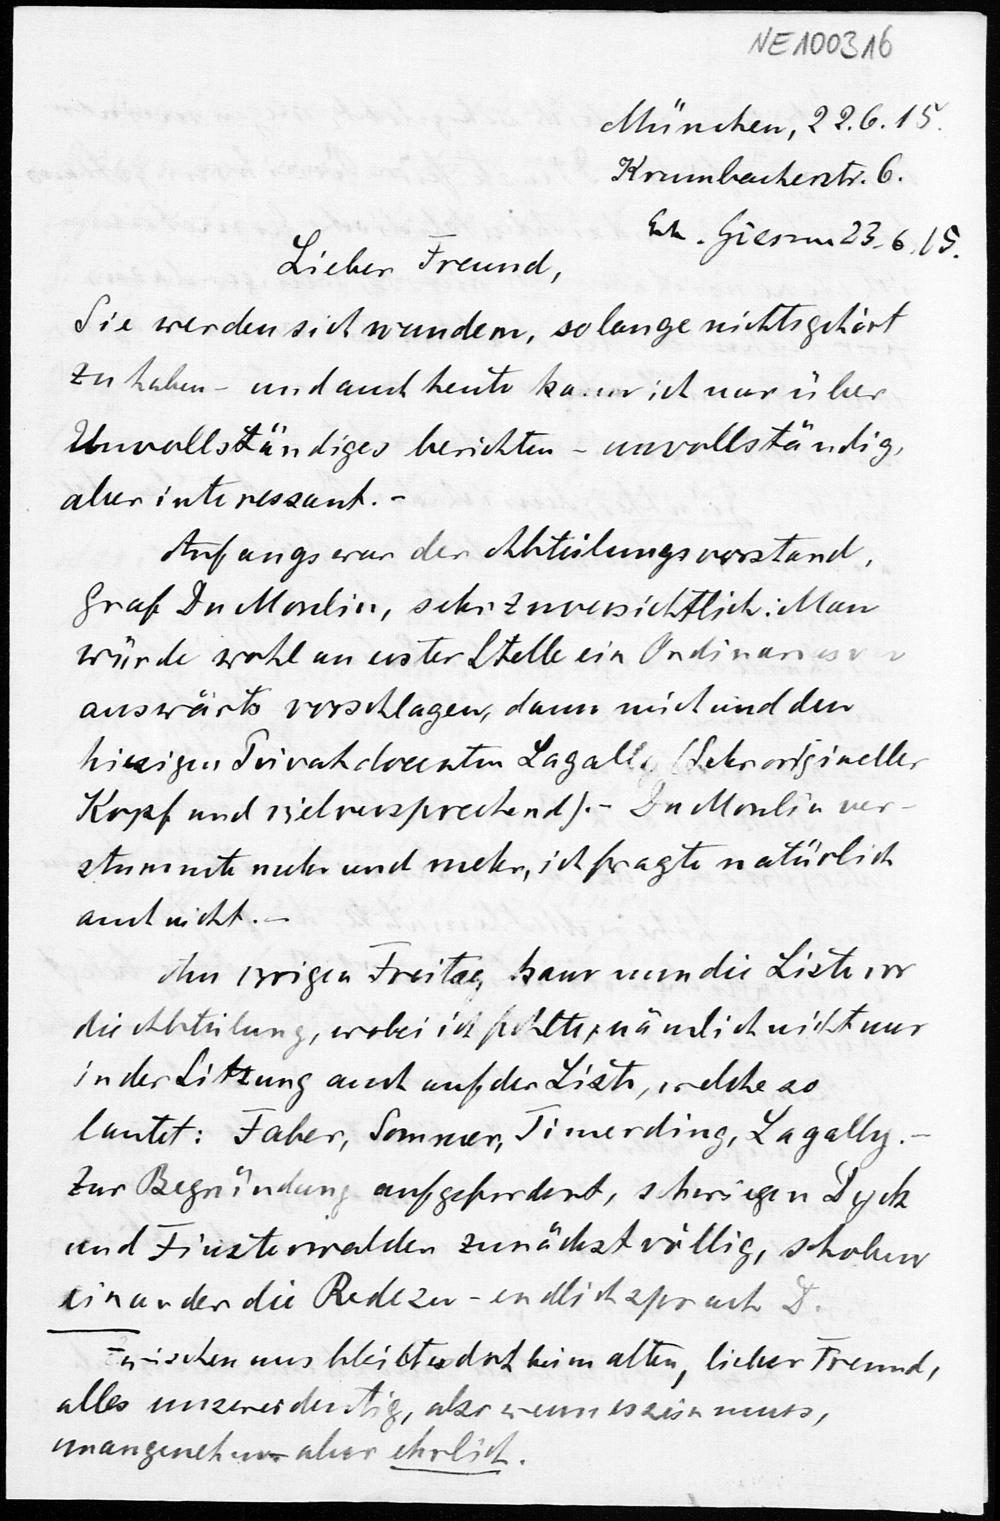 NE100316
München, 22.6.15.
Krumbacherstr. 6.
Erh. Giessen 23.6.15.
Lieber Freund,
Sie werden sich wundern, so lange nichts gehört
zu haben – und auch heute kann ich nur über
Unvollständiges berichten – unvollständig,
aber interessant. –
Anfangs war der Abteilungsvorstand,
Graf Du Moulin, sehr zuversichtlich: Man
würde wohl an erster Stelle ein Ordinarius von
auswärts vorschlagen, dann mich und den
hiesigen Privatdocenten Lagally (Sehr origineller
Kopf und vielversprechend). – Du Moulin ver-
stummte mehr und mehr, ich fragte natürlich
auch nicht. –
Am vorigen Freitag kam nun die Liste vor
die Abteilung, wobei ich fehlte, nämlich nicht nur
in der Sitzung auch auf der Liste, welche so
lautet: Faber, Sommer, Timerding, Lagally. –
Zur Begründung aufgefordert, schwiegen Dyck
und Finsterwalder zunächst völlig, schoben
einander die Rede zu – endlich sprach D.
Zwischen uns bleibt es doch beim alten, lieber Freund,
alles unzweideutig, also wenn es sein muss,
unangenehm aber ehrlich.